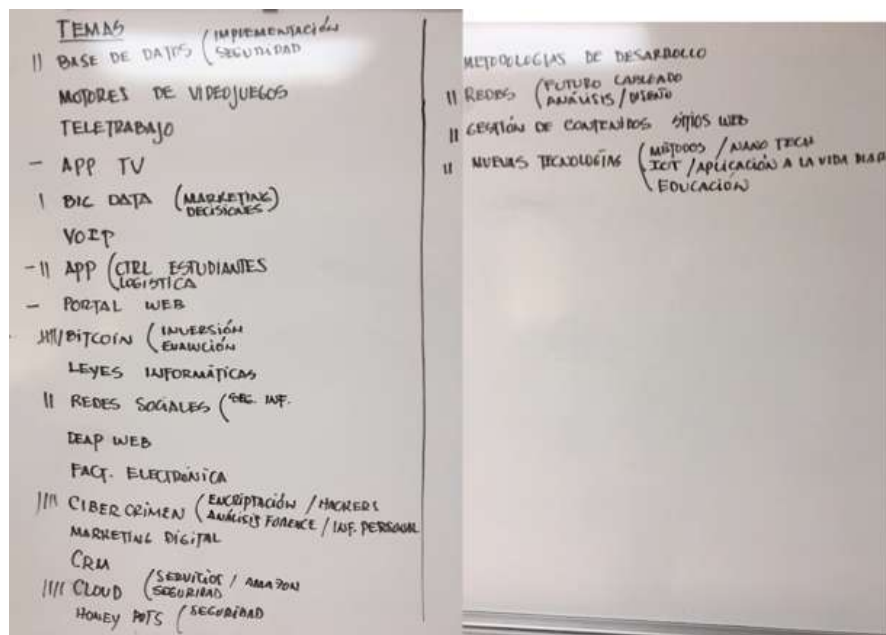 TEMAS
|| BASE DE DATOS (IMPLEMENTACIÓN
SEGURIDAD
MOTORES DE VIDEOJUEGOS
TELETRABAJO
– APP TV
| BIG DATA (MARKETING
DECISIONES)
VOIP
–|| APP (CTRL ESTUDIANTES
LOGISTICA
– PORTAL WEB
BITCOIN (INVERSIÓN
LEYES INFORMÁTICAS
|| REDES SOCIALES (SEG. INF.
DEAP WEB
FACT. ELECTRÓNICA
|||| CIBER CRIMEN (ENCRIPTACIÓN / HACKERS
ANÁLISIS FORENCE / INF. PERSONAL
MARKETING DIGITAL
CRM
|||| CLOUD (SERVICIOS / AMAZON
SEGURIDAD
HONEY POTS (SEGURIDAD
METODOLOGÍAS DE DESARROLLO
|| REDES (FUTURO CABLEADO
ANÁLISIS / DISEÑO
|| GESTIÓN DE CONTENIDOS SITIOS WEB
|| NUEVAS TECNOLOGÍAS (MÉTODOS / NANO TECH
IOT / APLICACIÓN A LA VIDA DIAR
EDUCACIÓN